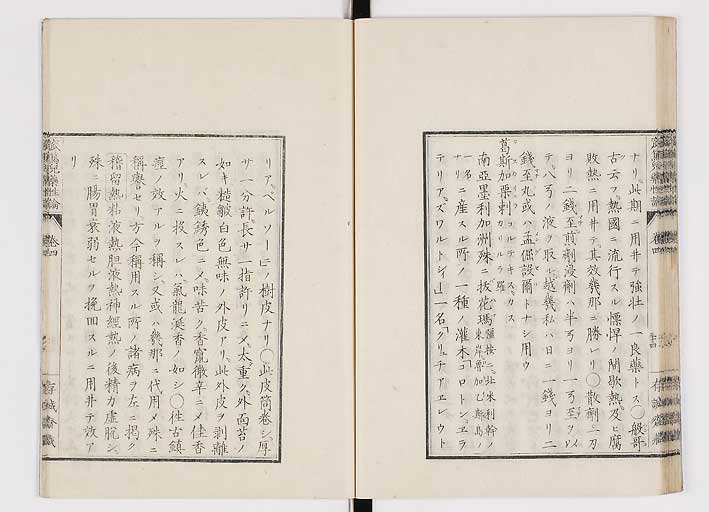 ナリ此期ニ用井テ強壮ノ一良藥トス〇般哥
古云フ熱國ニ流行スル慓悍ノ間歇熱及ヒ腐
敗熱ニ用井テ其效幾那ニ勝レリ〇散劑ニ刀
ヨリ二錢至煎劑浸劑ハ半ヨリ一至ヲ以
テ八ノ液ヲ取ル越幾私ハ日ニ一錢ヨリ二
錢至丸或ハ舍利別トナシ用ウ
葛斯加栗刺 コルテキス、カス カリルラ 羅
南亞墨利加洲殊ニ
ナリニ産スル所ノ一種ノ灌木コロトン、エラ
テリア、ズワルトシ一名クリュチアエレウト
リア、ベルソーニノ樹皮ナリ〇此皮筒卷シ厚
サ一分許長サ一指許リニ乄太重ク外面苔ノ
如キ皺白色無味ノ外皮アリ此外皮ヲ剥離
スレバ鐵銹色ニ乄味苦ク香竄微辛ニ乄佳香
アリ火ニ投スレハ氣龍涎香ノ如シ〇徃古鎮
痙ノ效アルヲ稱シ又或ハ幾那ニ代用メ殊ニ
稱譽セリ方今稱用スル所ノ諸病ヲ左ニ掲ク
稽留熱粘液熱胆液熱神經熱ノ後精力虛脱シ
殊ニ腸胃衰弱セルヲ挽回スルニ用井テ效ア
リ
卷四
卷四